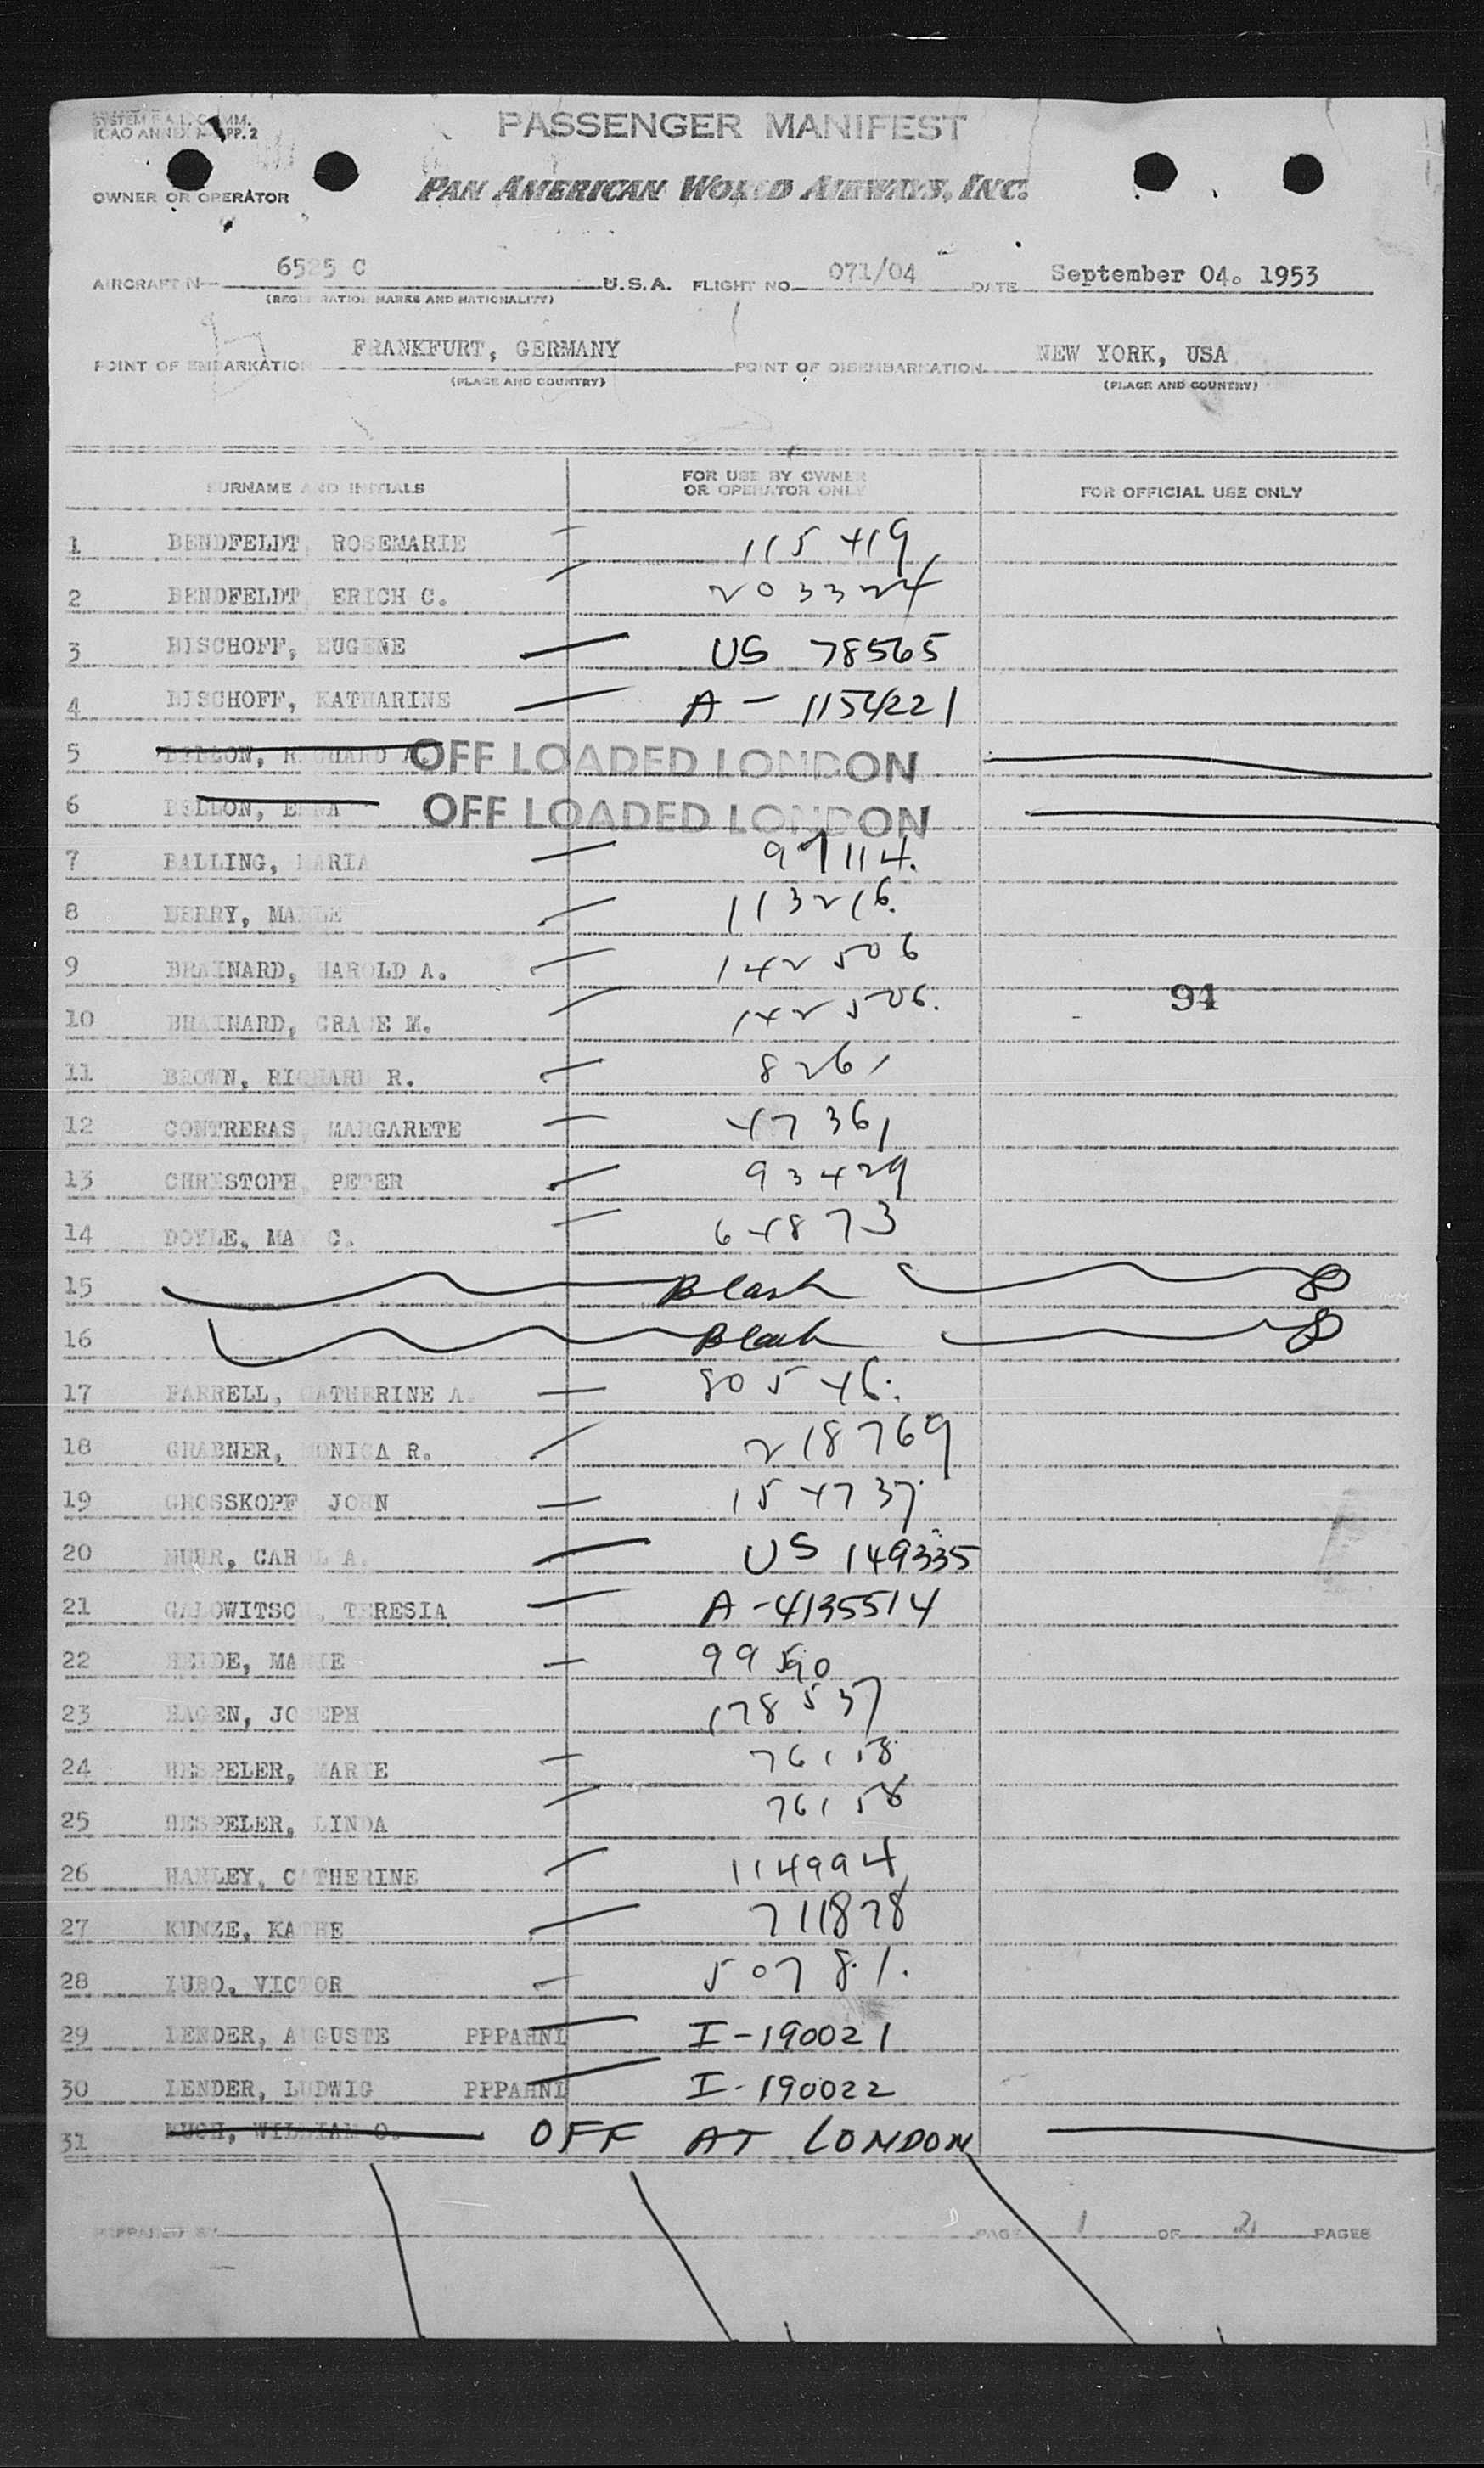 SYSTEM F.A.L. COMM.
ICAO ANNEX 9-APP. 2
PASSENGER MANIFEST
OWNER OR OPERATOR PAN AMERICAN WORLD AIRWAYS, INC.
AIRCRAFT N 6525 C U.S.A. FLIGHT NO. 071/04 DATE September 04. 1953
(REGISTRATION MARKS AND NATIONALITY)
POINT OF EMBARKATION FRANKFURT, GERMANY POINT OF DISEMBARKATION NEW YORK, USA
(PLACE AND COUNTRY) (PLACE AND COUNTRY)
SURNAME AND INITIALS FOR USE BY OWNER OR OPERATOR ONLY FOR OFFICIAL USE ONLY
1 BENDFELDT, ROSEMARIE — 115419
2 BENDFELDT, ERICH C. — 203324
3 BISCHOFF, EUGENE — US 78565
4 BISCHOFF, KATHARINE — A-1154221
5 RICHARD OFF LOADED LONDON
6 OFF LOADED LONDON
7 BALLING, MARIA — 97114.
8 BERRY, — 113216.
9 BRAINARD, HAROLD A. — 142506
10 BRAINARD, GRACE M. — 142506. 94
11 BROWN, RICHARD R. — 8261
12 CONTRERAS, MARGARETE — 47361
13 CHRISTOPH, PETER — 93429
14 DOYLE, MAY C. — 64873
15 Blank
16 Blank
17 FARRELL, CATHERINE A. — 80546.
18 GRABNER, MONICA R. — 218769
19 GROSSKOPF JOHN — 154737
20 CAROL A. — US 149335
21 GALOWITSCH, TERESIA — A-4135514
22 HEIDE, MARIE — 99590
23 HAGEN, JOSEPH 178537
24 HESPELER, MARIE — 76158
25 HESPELER, LINDA — 76158
26 HANLEY, CATHERINE — 114994
27 KUNZE, KATHE — 711878
28 LUBO, VICTOR — 50781.
29 LENDER, AUGUSTE PPPAHNL — I-190021
30 LENDER, LUDWIG PPPAHNL — I-190022
31 WILLIAM O. OFF AT LONDON
PREPARED BY PAGE 1 OF 2 PAGES